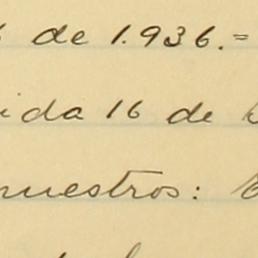 de 1.936.=
ida 16 de
nuestros: